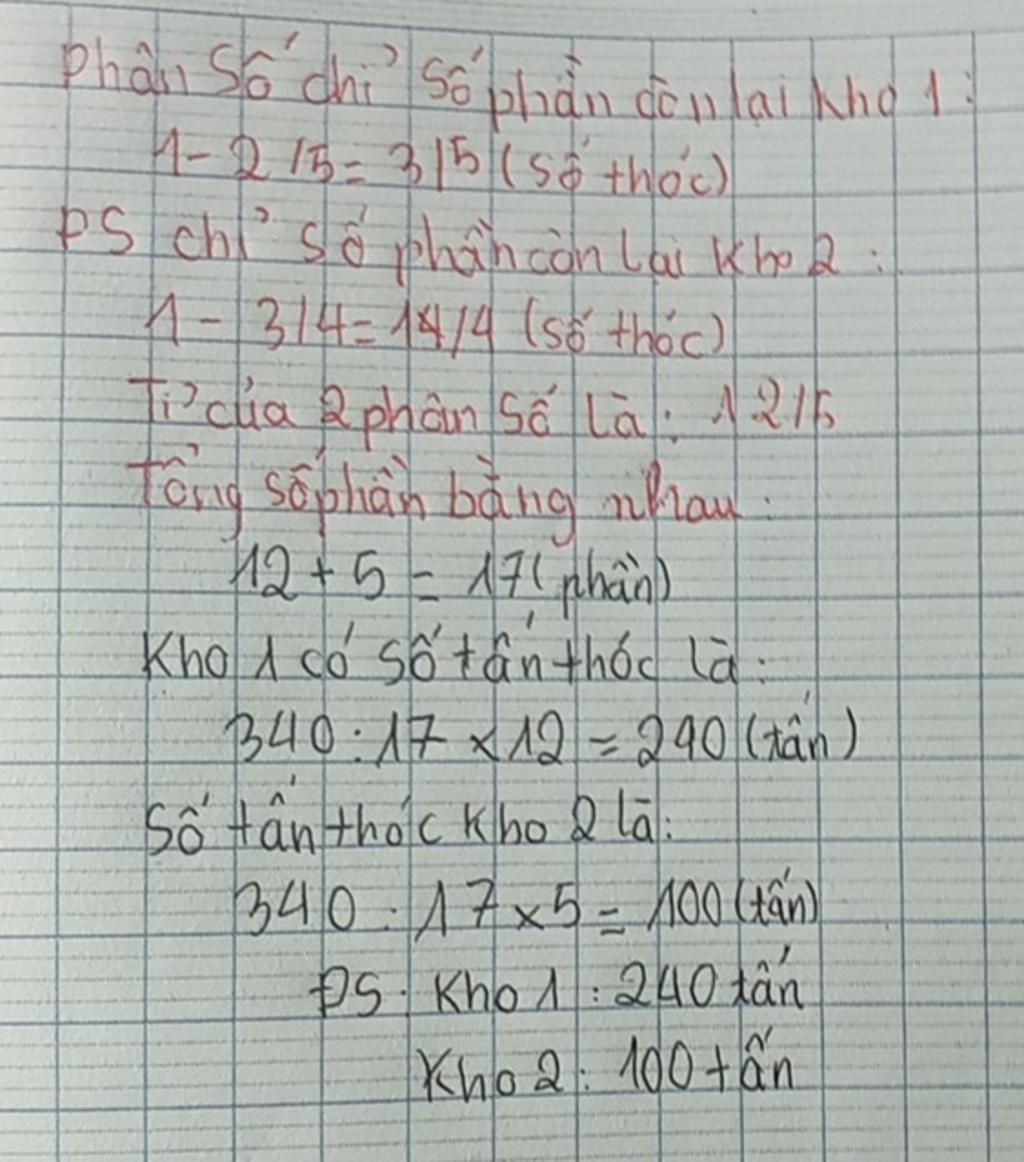 Phân số chỉ số phần còn lại kho 1:
1 - 2/5 = 3/5 (số thóc)
PS chỉ số phần còn lại kho 2:
1 - 3/4 = 1/4 (số thóc)
Tỉ của 2 phân số là: 12/5
Tổng số phần bằng nhau:
12 + 5 = 17 (phần)
Kho 1 có số tấn thóc là:
340 : 17 x 12 = 240 (tấn)
Số tấn thóc kho 2 là:
340 : 17 x 5 = 100 (tấn)
ĐS: Kho 1: 240 tấn
Kho 2: 100 tấn